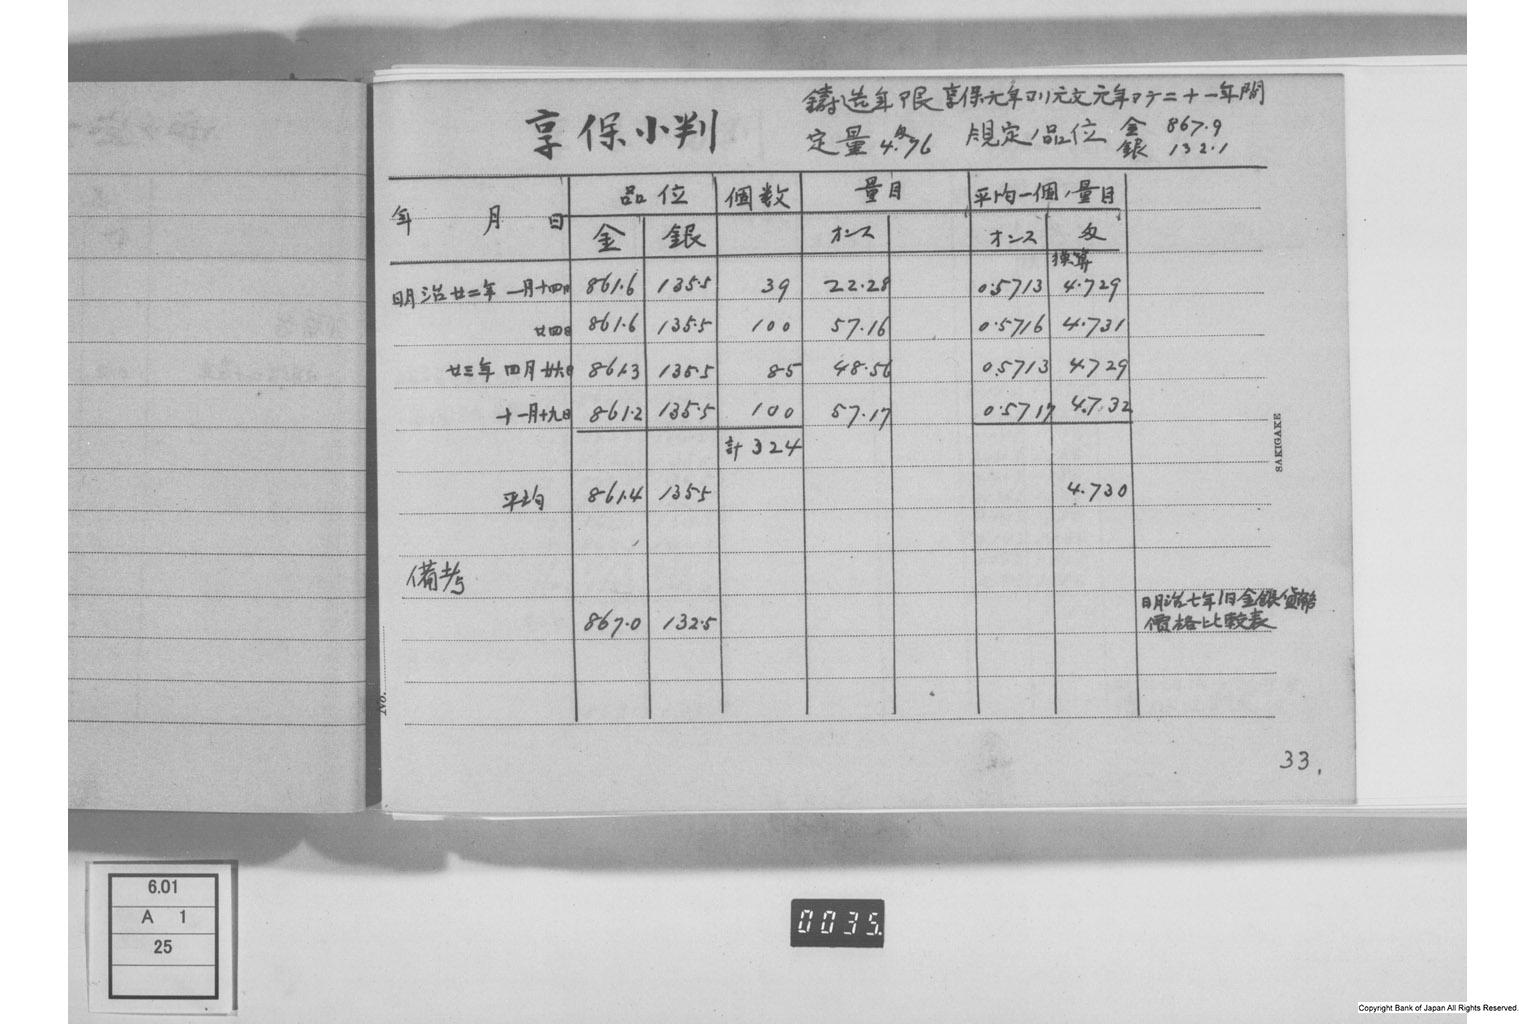 鋳造年限 享保元年ヨリ元文元年マデ二十一年間
享保小判
定量 匁 4.76 規定ノ品位 金 867.9
銀 132.1
年 月 日 品位 個数 量目 平均一個ノ量目
金 銀 オンス オンス 匁
換算
明治廿二年 一月十四日 861.6 135.5 39 22.28 0.5713 4.729
廿四日 861.6 135.5 100 57.16 0.5716 4.731
廿三年 四月廿六日 861.3 135.5 85 48.56 0.5713 4.729
十一月十九日 861.2 135.5 100 57.17 0.5717 4.732
計 324
平均 861.4 135.5 4.730
備考
867.0 132.5 明治七年旧金銀貨幣
價格比較表
SAKIGAKE
No.
33.
6.01
A 1
25
0035.
Copyright Bank of Japan All Rights Reserved.